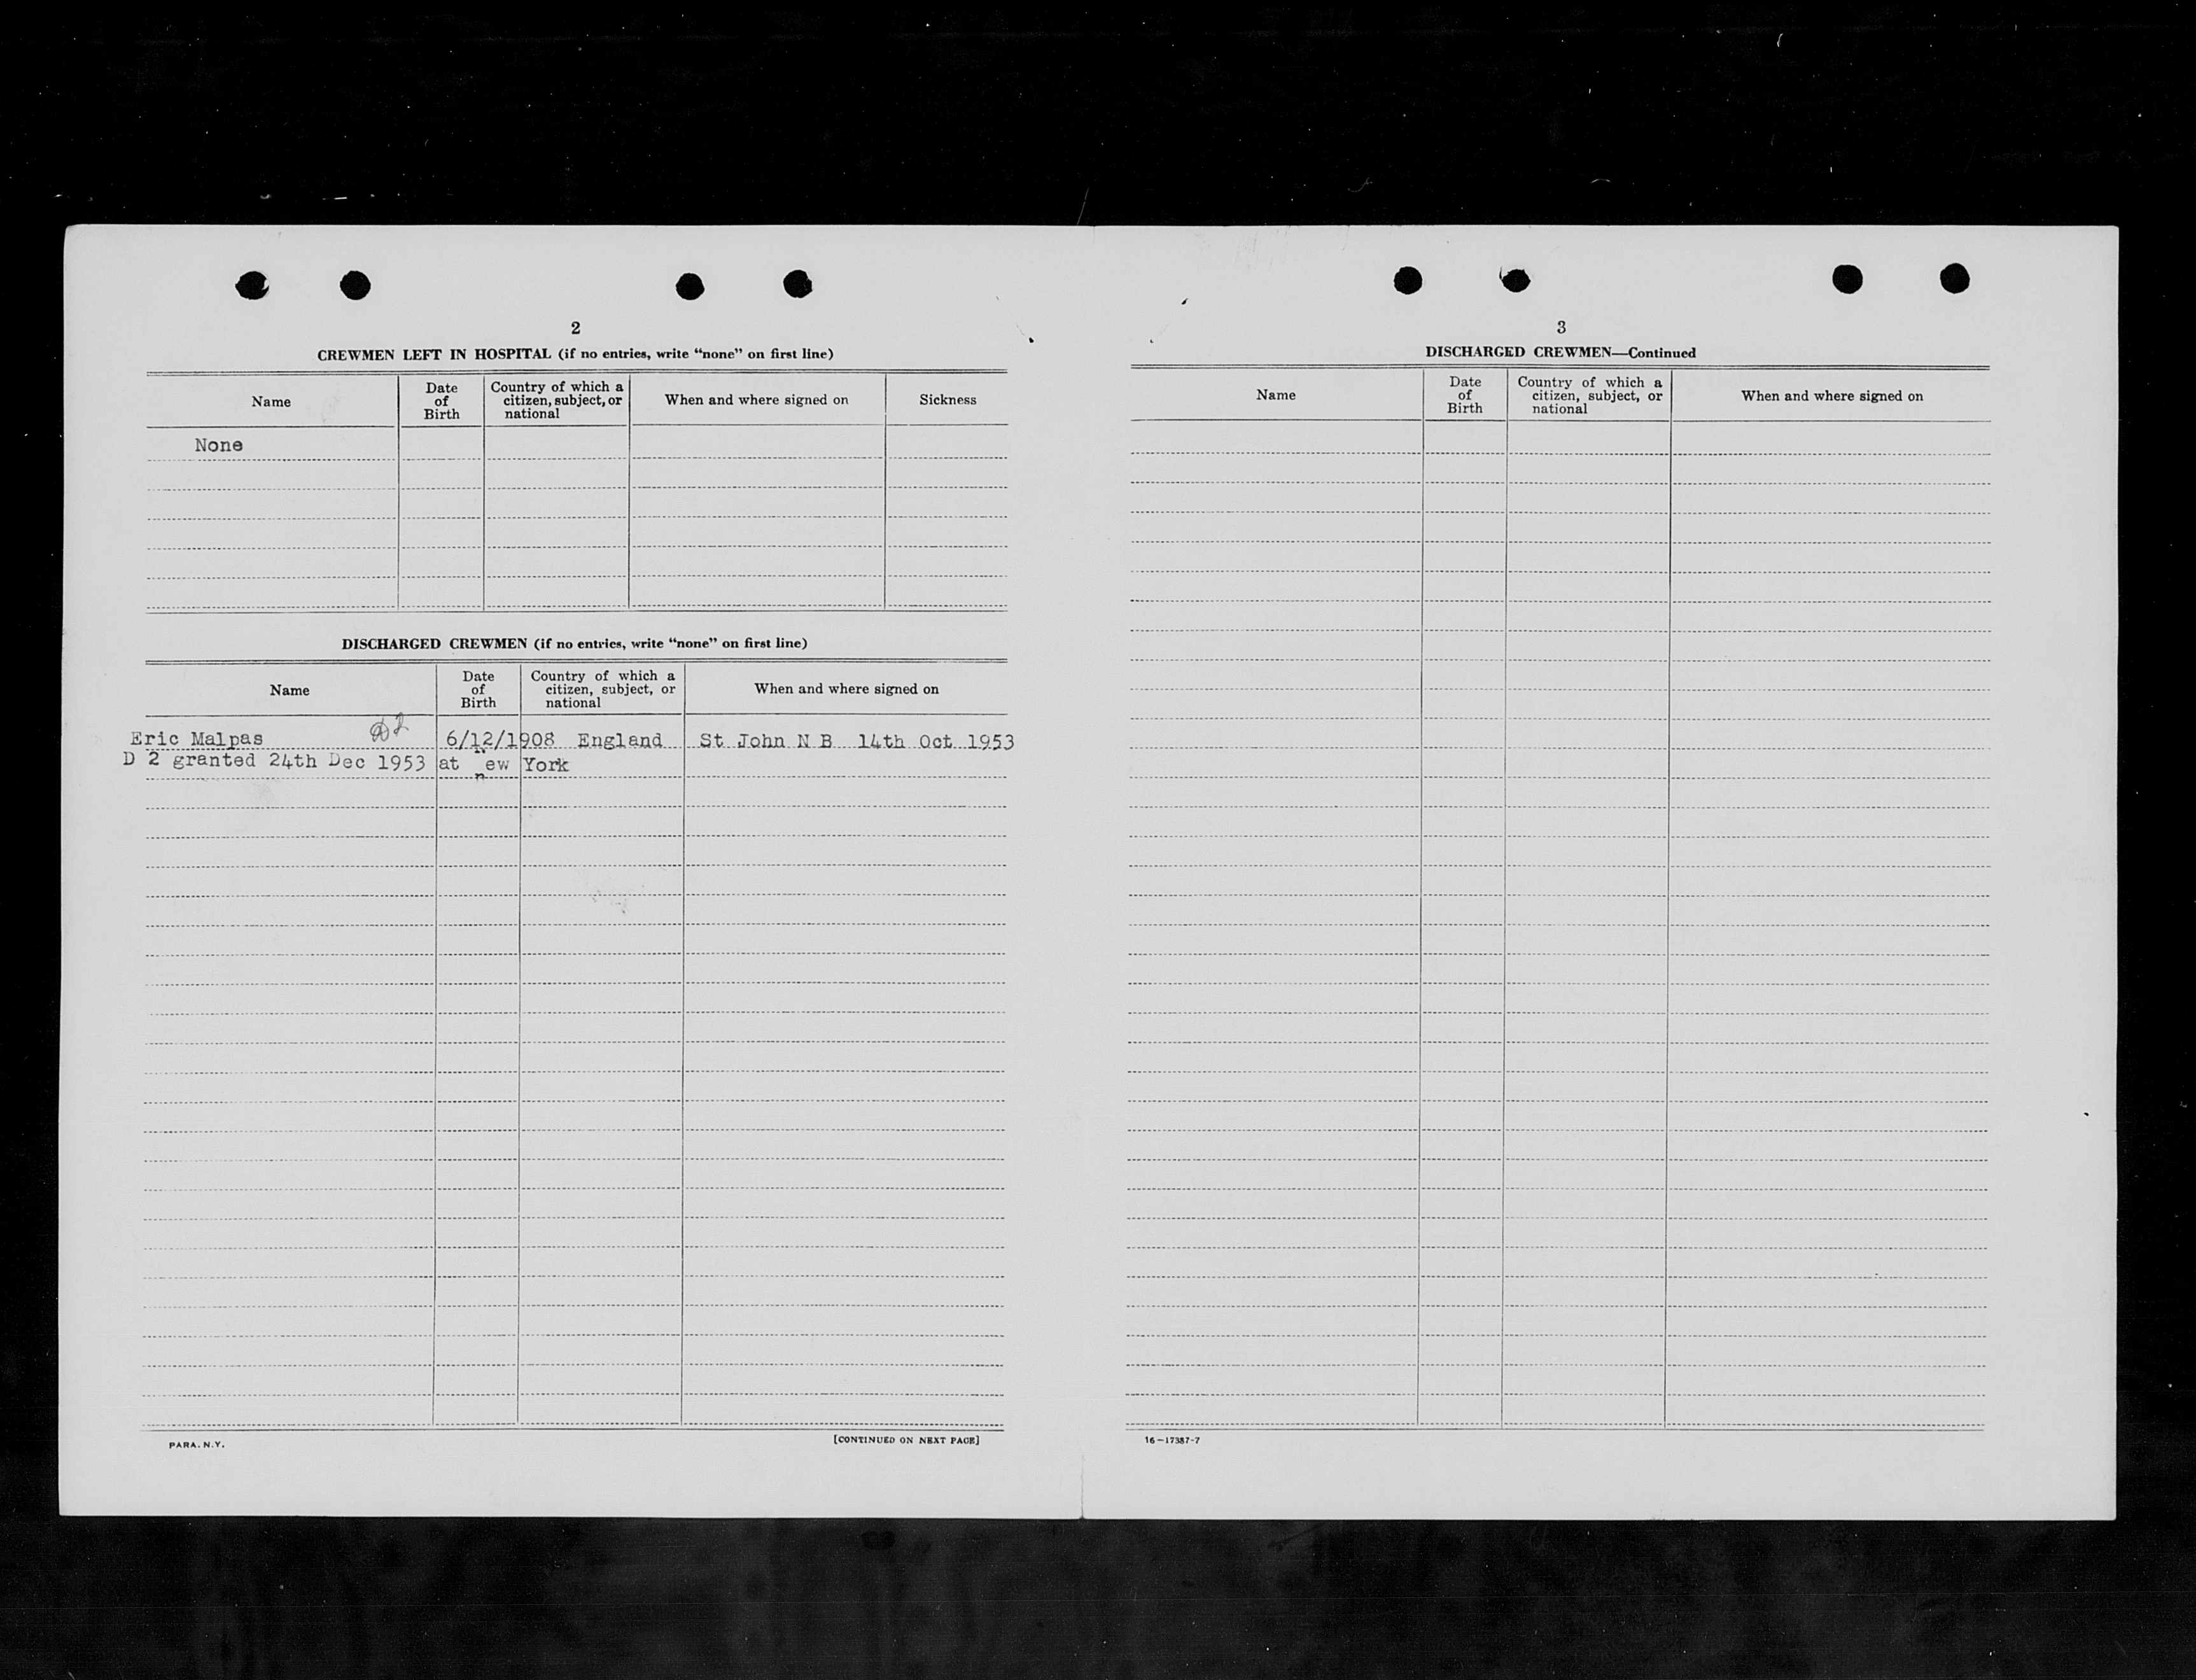 2
CREWMEN LEFT IN HOSPITAL (if no entries, write "none" on first line)
Name
Date of Birth
Country of which a citizen, subject, or national
When and where signed on
Sickness
None
DISCHARGED CREWMEN (if no entries, write "none" on first line)
Name
Date of Birth
Country of which a citizen, subject, or national
When and where signed on
D2
Eric Malpas 6/12/1908 England St John N B 14th Oct 1953
D 2 granted 24th Dec 1953 at New York
PARA. N.Y.
[CONTINUED ON NEXT PAGE]
3
DISCHARGED CREWMEN—Continued
Name
Date of Birth
Country of which a citizen, subject, or national
When and where signed on
16—17387-7